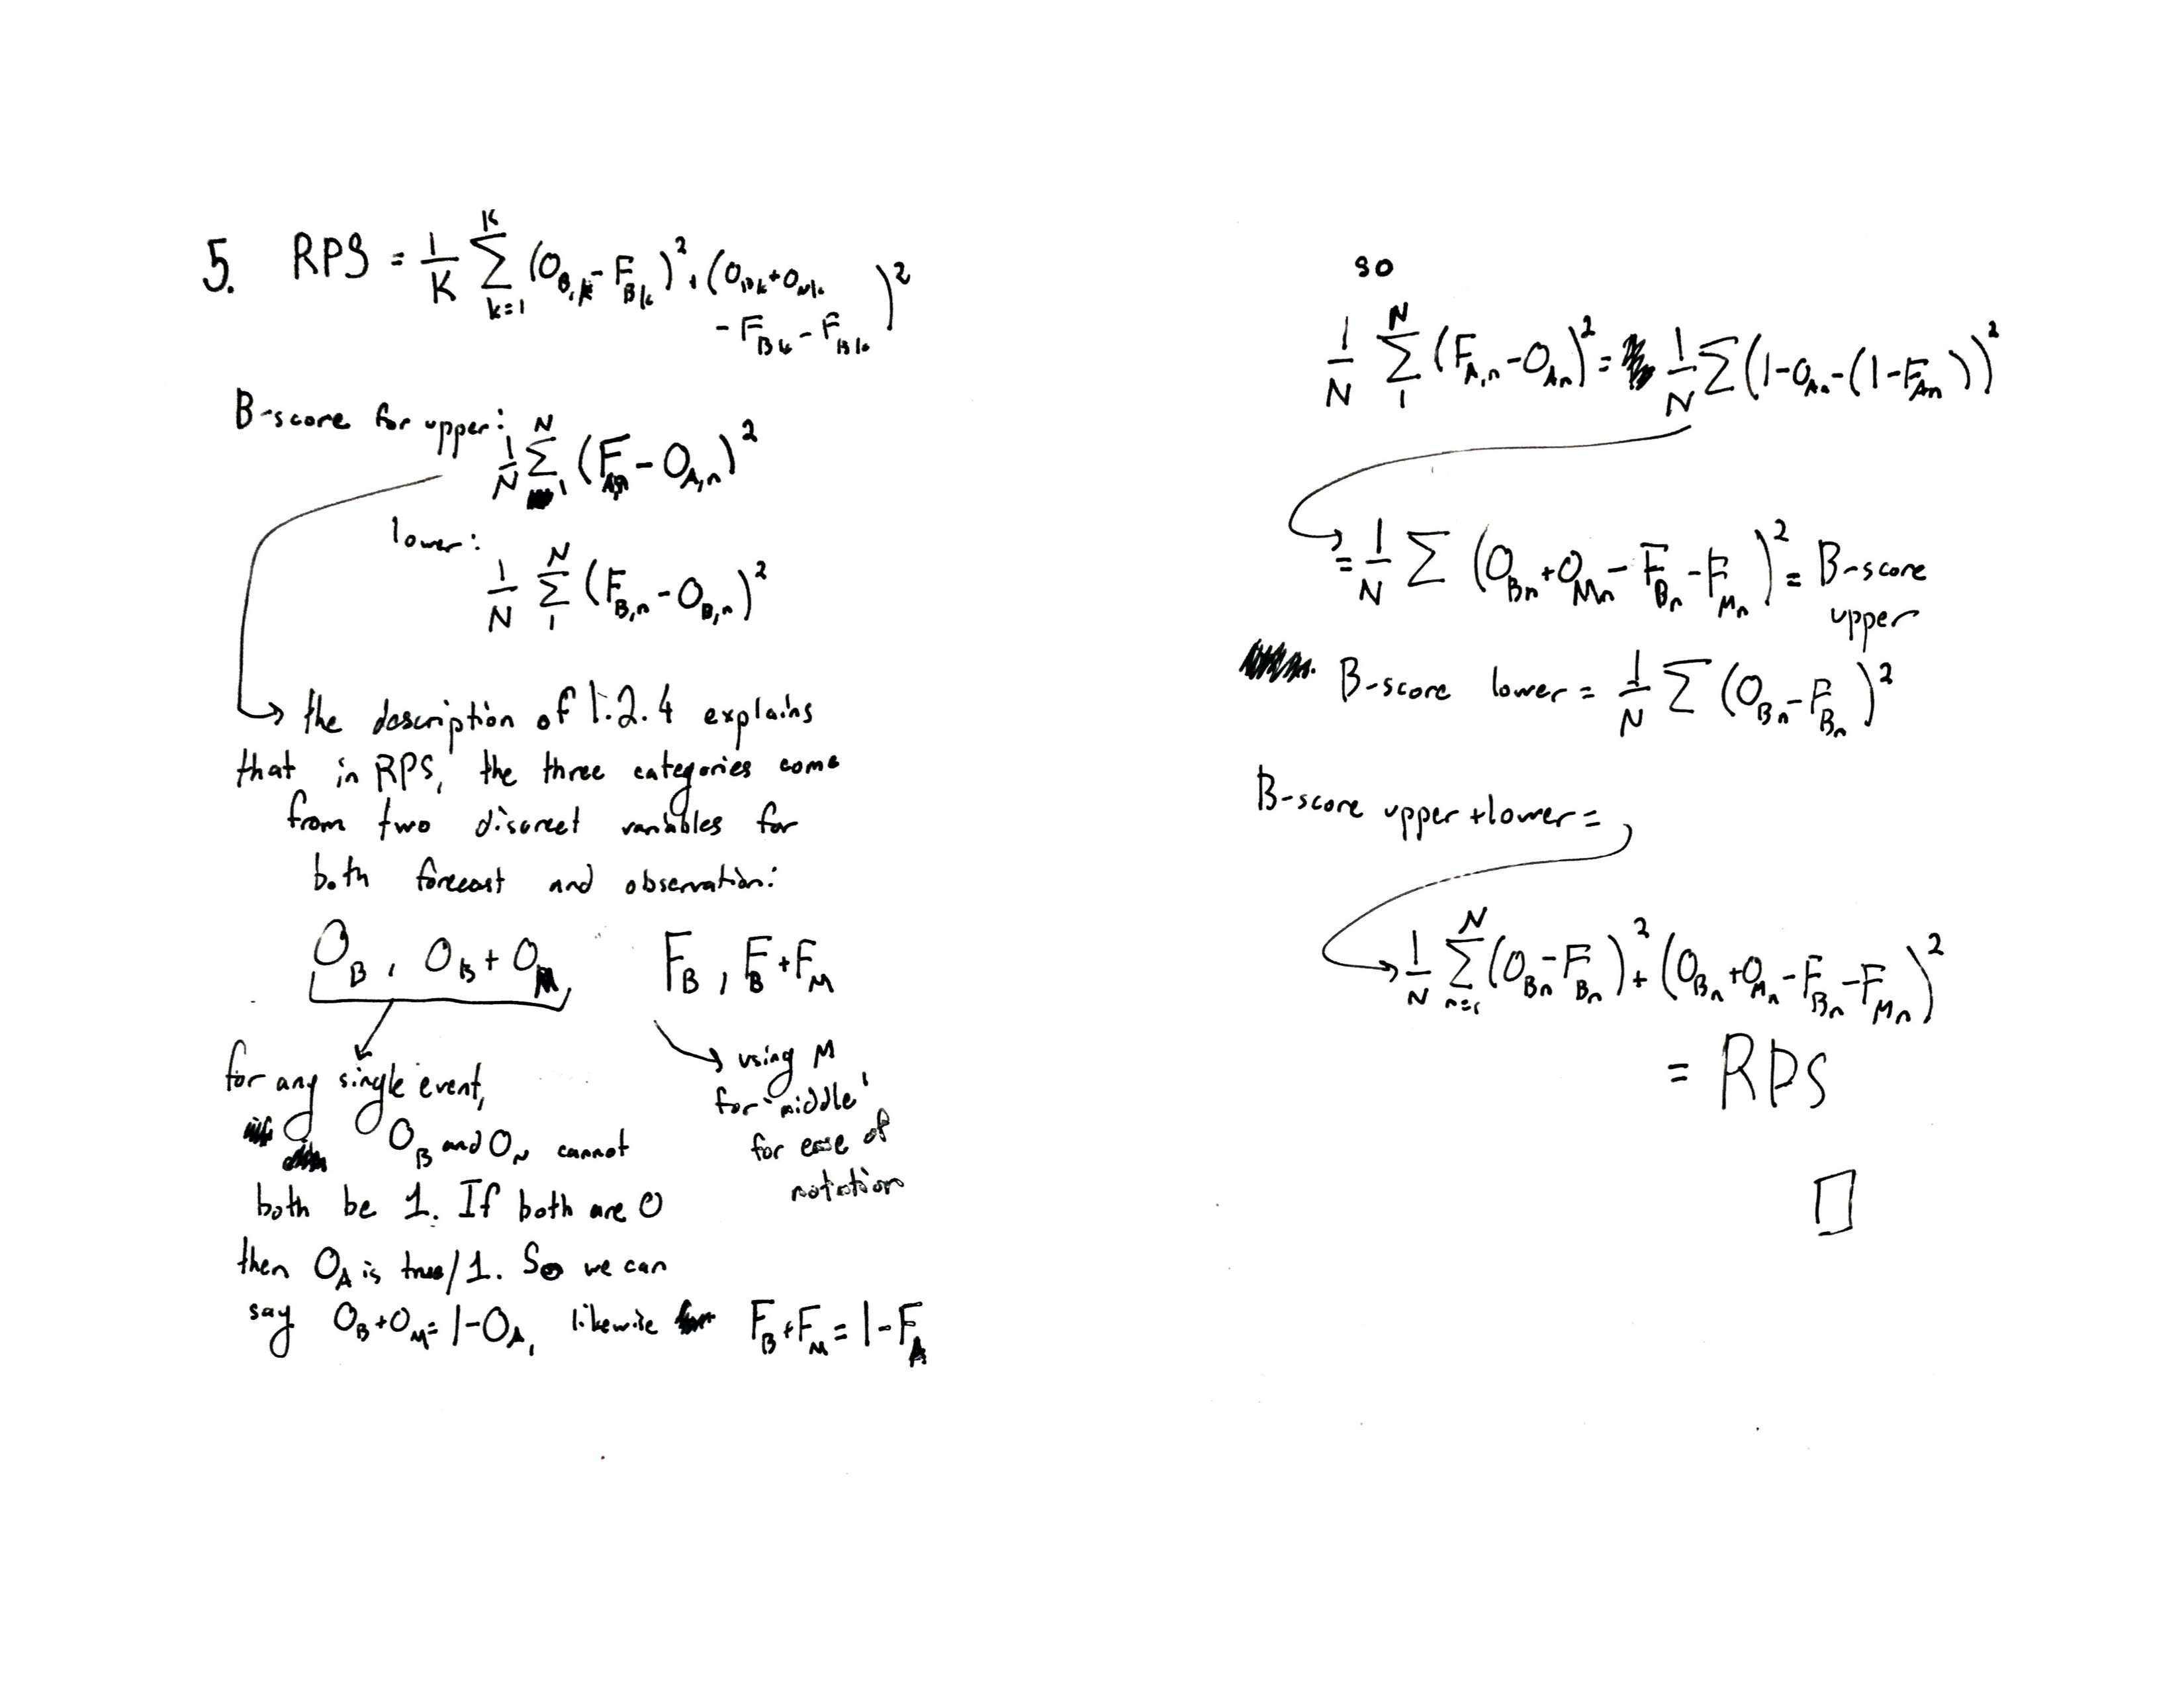 5. RPS = 1/K K∑k=1 (O_B,k - F_Bk)² + (O_Bk + O_Nk
- F_Bk - F_Bk)²
B-score for upper:
1/N N∑1 (F_A,n - O_A,n)²
lower:
1/N N∑1 (F_B,n - O_B,n)²
the description of 1.2.4 explains
that in RPS, the three categories come
from two discreet variables for
both forecast and observation:
O_B, O_B + O_M F_B, F_B + F_M
using M
for 'middle'
for ease of
notation
for any single event,
O_B and O_N cannot
both be 1. If both are 0
then O_A is true/1. So we can
say O_B + O_M = 1 - O_A, likewise F_B + F_M = 1 - F_A
so
1/N N∑1 (F_A,n - O_An)² = 1/N ∑ (1 - O_An - (1 - F_An))²
= 1/N ∑ (O_Bn + O_Mn - F_Bn - F_Mn)² = B-score
upper
B-score lower = 1/N ∑ (O_Bn - F_Bn)²
B-score upper + lower =
1/N N∑n=1 (O_Bn - F_Bn)² + (O_Bn + O_Mn - F_Bn - F_Mn)²
= RPS